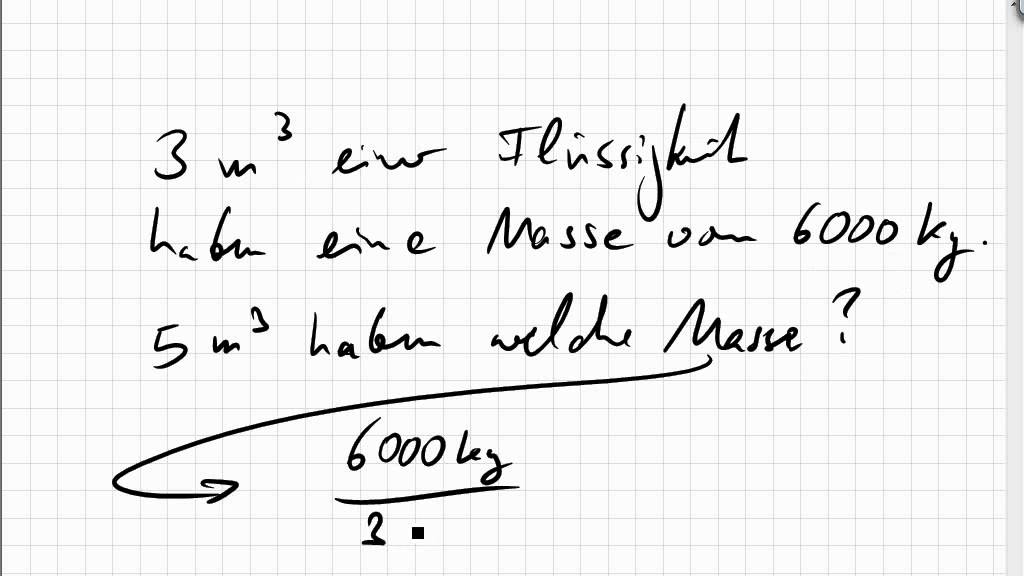 3 m³ einer Flüssigkeit
haben eine Masse von 6000 kg.
5 m³ haben welche Masse?
6000 kg
3